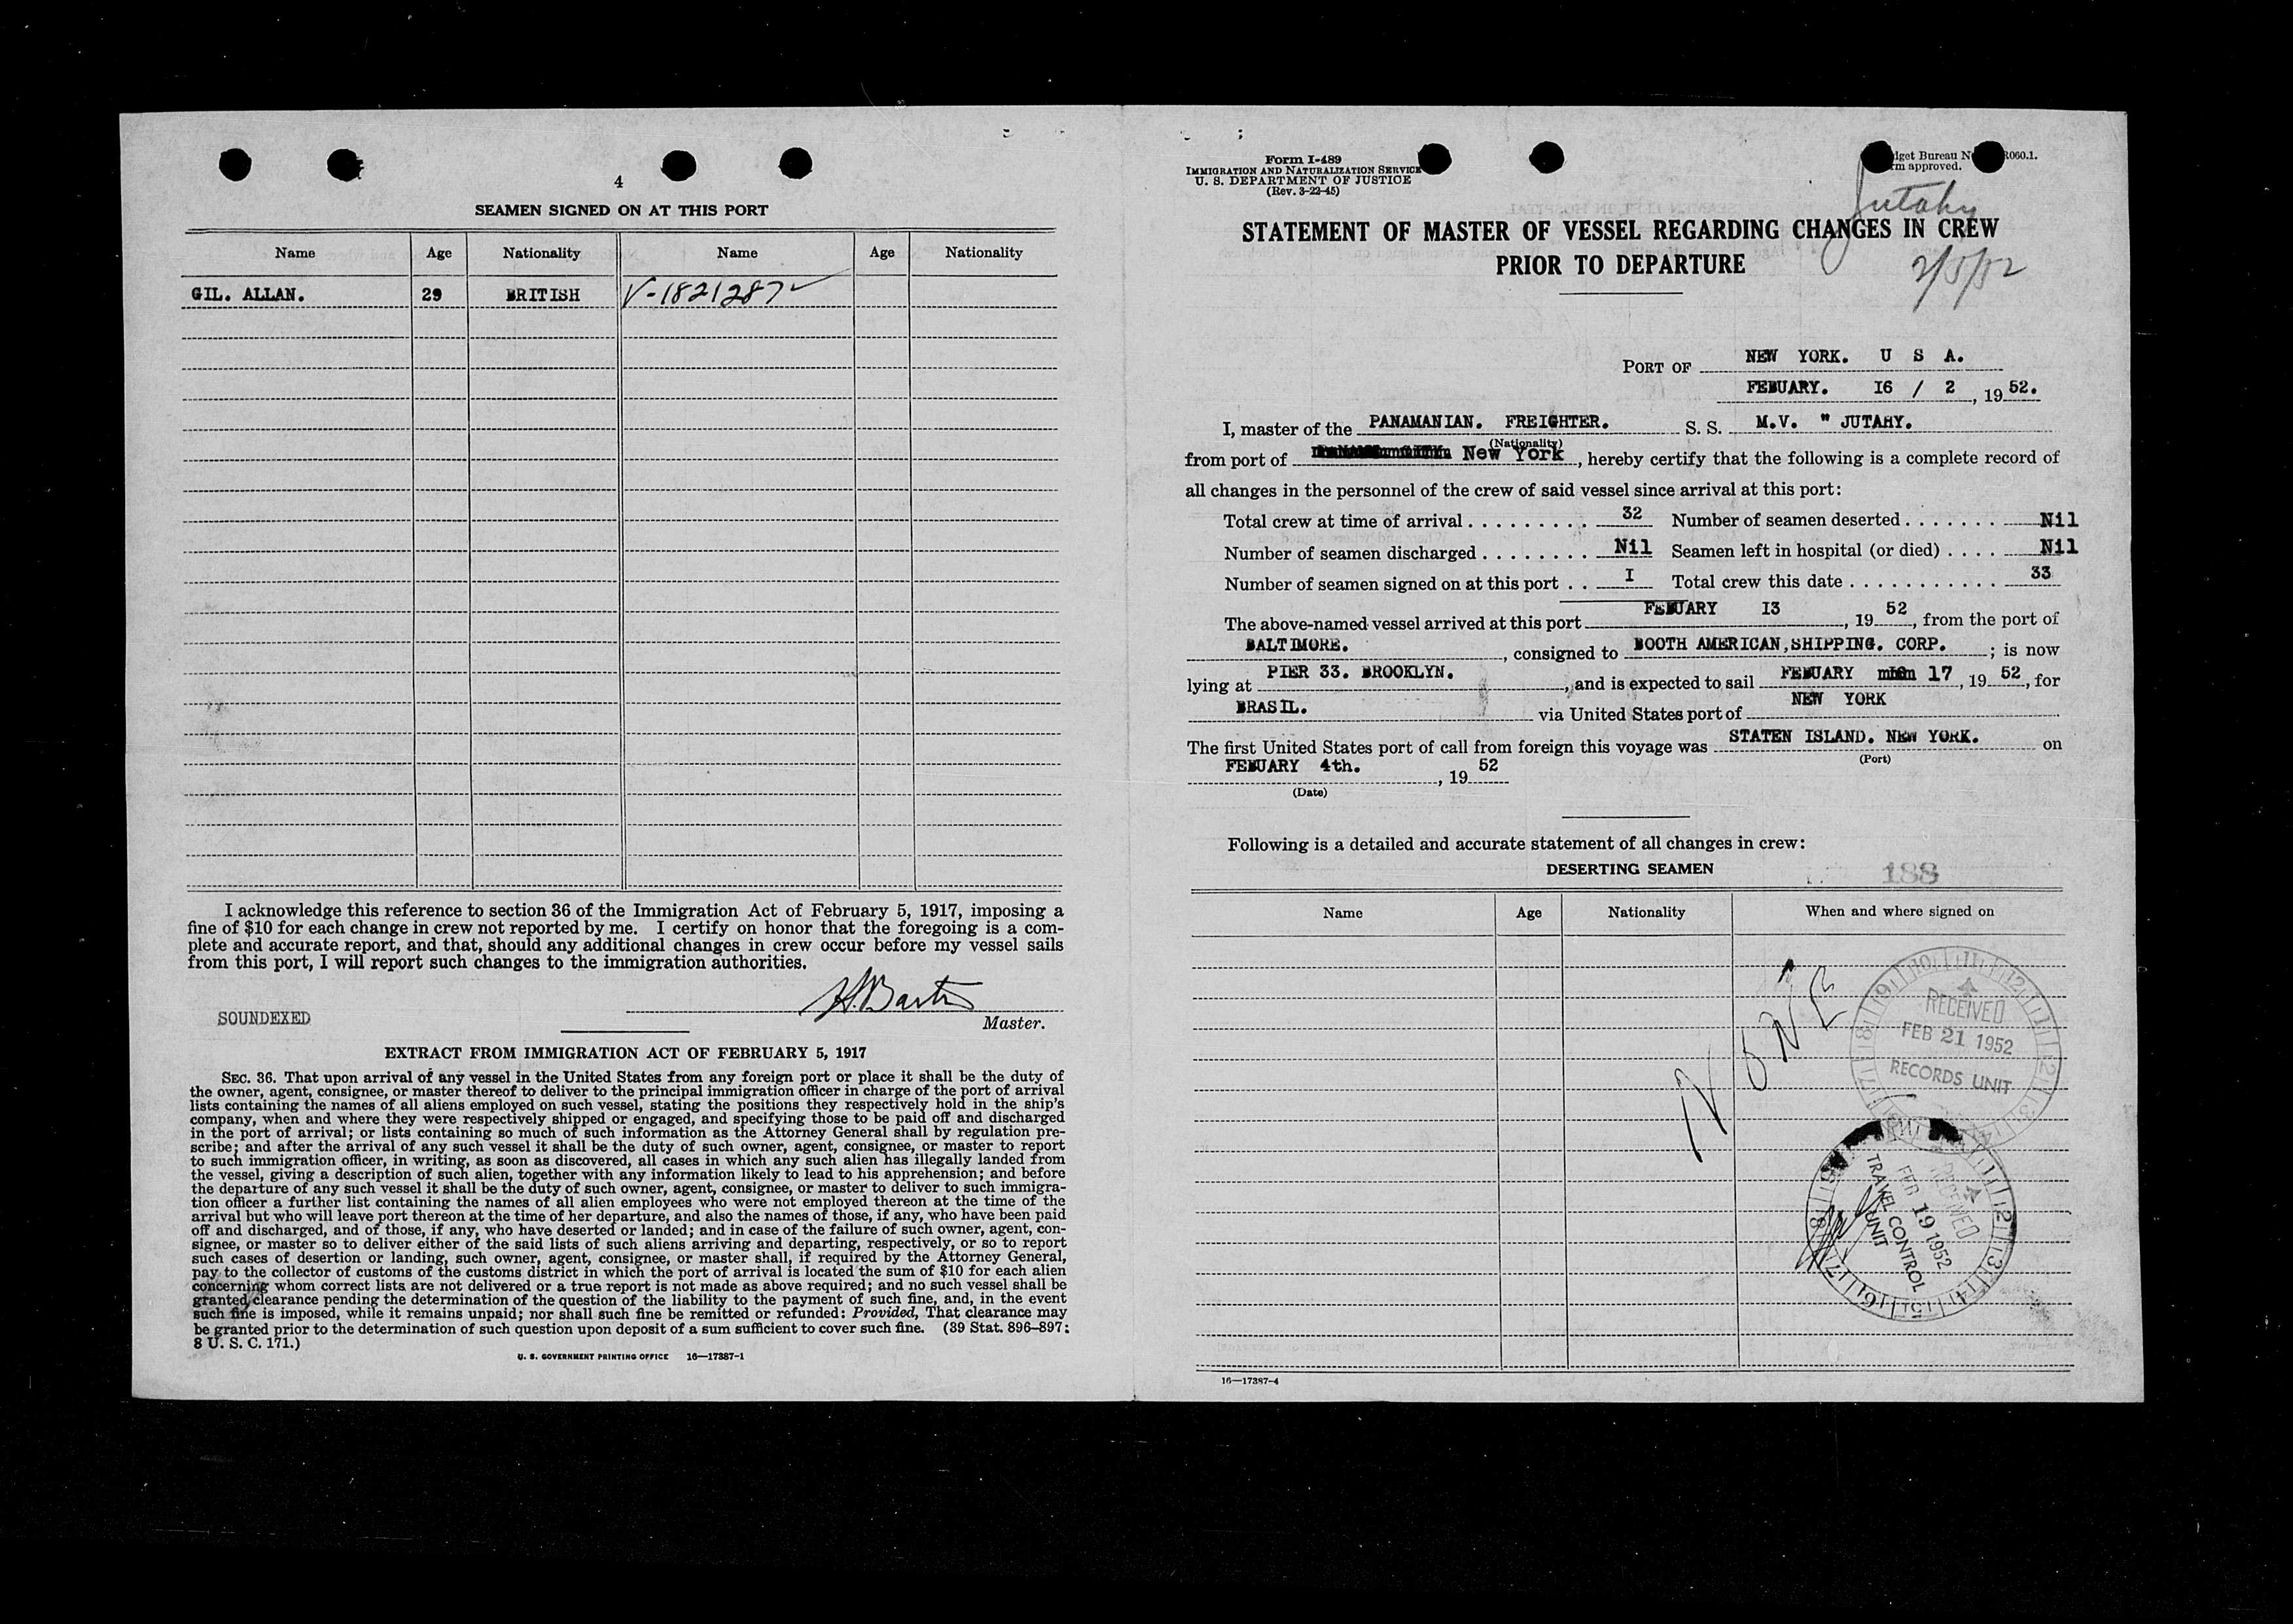 4
SEAMEN SIGNED ON AT THIS PORT
Name Age Nationality Name Age Nationality
GIL. ALLAN. 29 BRITISH V-1821287
I acknowledge this reference to section 36 of the Immigration Act of February 5, 1917, imposing a
fine of $10 for each change in crew not reported by me. I certify on honor that the foregoing is a com-
plete and accurate report, and that, should any additional changes in crew occur before my vessel sails
from this port, I will report such changes to the immigration authorities.
SOUNDEXED
Master.
EXTRACT FROM IMMIGRATION ACT OF FEBRUARY 5, 1917
SEC. 36. That upon arrival of any vessel in the United States from any foreign port or place it shall be the duty of
the owner, agent, consignee, or master thereof to deliver to the principal immigration officer in charge of the port of arrival
lists containing the names of all aliens employed on such vessel, stating the positions they respectively hold in the ship's
company, when and where they were respectively shipped or engaged, and specifying those to be paid off and discharged
in the port of arrival; or lists containing so much of such information as the Attorney General shall by regulation pre-
scribe; and after the arrival of any such vessel it shall be the duty of such owner, agent, consignee, or master to report
to such immigration officer, in writing, as soon as discovered, all cases in which any such alien has illegally landed from
the vessel, giving a description of such alien, together with any information likely to lead to his apprehension; and before
the departure of any such vessel it shall be the duty of such owner, agent, consignee, or master to deliver to such immigra-
tion officer a further list containing the names of all alien employees who were not employed thereon at the time of the
arrival but who will leave port thereon at the time of her departure, and also the names of those, if any, who have been paid
off and discharged, and of those, if any, who have deserted or landed; and in case of the failure of such owner, agent, con-
signee, or master so to deliver either of the said lists of such aliens arriving and departing, respectively, or so to report
such cases of desertion or landing, such owner, agent, consignee, or master shall, if required by the Attorney General,
pay to the collector of customs of the customs district in which the port of arrival is located the sum of $10 for each alien
concerning whom correct lists are not delivered or a true report is not made as above required; and no such vessel shall be
granted clearance pending the determination of the question of the liability to the payment of such fine, and, in the event
such fine is imposed, while it remains unpaid; nor shall such fine be remitted or refunded: Provided, That clearance may
be granted prior to the determination of such question upon deposit of a sum sufficient to cover such fine. (39 Stat. 896-897;
8 U. S. C. 171.)
U. S. GOVERNMENT PRINTING OFFICE 16—17387-1
Form I-489
IMMIGRATION AND NATURALIZATION SERVICE
U. S. DEPARTMENT OF JUSTICE
(Rev. 3-22-45)
Bureau
approved.
Jutahy
2/5/52
STATEMENT OF MASTER OF VESSEL REGARDING CHANGES IN CREW
PRIOR TO DEPARTURE
PORT OF NEW YORK. U S A.
FEBUARY. I6 / 2, 1952.
I, master of the PANAMANIAN. FREIGHTER. S. S. M.V. " JUTAHY.
(Nationality)
from port of New York, hereby certify that the following is a complete record of
all changes in the personnel of the crew of said vessel since arrival at this port:
Total crew at time of arrival . . . . . . . . . 32 Number of seamen deserted . . . . . . . Nil
Number of seamen discharged . . . . . . . . Nil Seamen left in hospital (or died) . . . . Nil
Number of seamen signed on at this port . . I Total crew this date . . . . . . . . . . . 33
The above-named vessel arrived at this port FEBUARY I3, 1952, from the port of
BALTIMORE., consigned to BOOTH AMERICAN,SHIPPING. CORP.; is now
lying at PIER 33. BROOKLYN., and is expected to sail FEBUARY 17, 1952, for
BRASIL. via United States port of NEW YORK
The first United States port of call from foreign this voyage was STATEN ISLAND. NEW YORK. on
(Port)
FEBUARY 4th., 1952
(Date)
Following is a detailed and accurate statement of all changes in crew:
DESERTING SEAMEN
188
Name Age Nationality When and where signed on
NONE
RECEIVED
FEB 21 1952
RECORDS UNIT
RECEIVED
FEB 19 1952
TRAVEL CONTROL
UNIT
16—17387-4